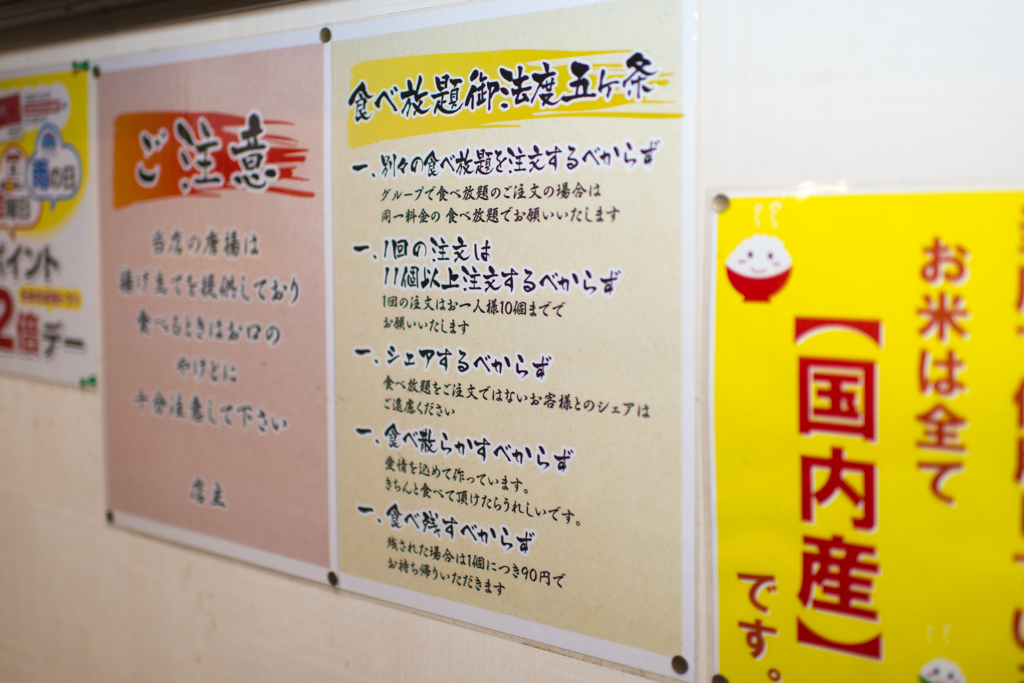 雨の日
曜日
ポイント
2倍デー
ご注意
当店の唐揚は
揚げ立てを提供しており
食べるときはお口の
やけどに
十分注意して下さい
店主
食べ放題御法度五ヶ条
一、別々の食べ放題を注文するべからず
グループで食べ放題のご注文の場合は
同一料金の食べ放題でお願いいたします
一、1回の注文は
11個以上注文するべからず
1回の注文はお一人様10個までで
お願いいたします
一、シェアするべからず
食べ放題をご注文ではないお客様とのシェアは
ご遠慮ください
一、食べ散らかすべからず
愛情を込めて作っています。
きちんと食べて頂けたらうれしいです。
一、食べ残すべからず
残された場合は1個につき90円で
お持ち帰りいただきます
お米は全て
【国内産】
です。